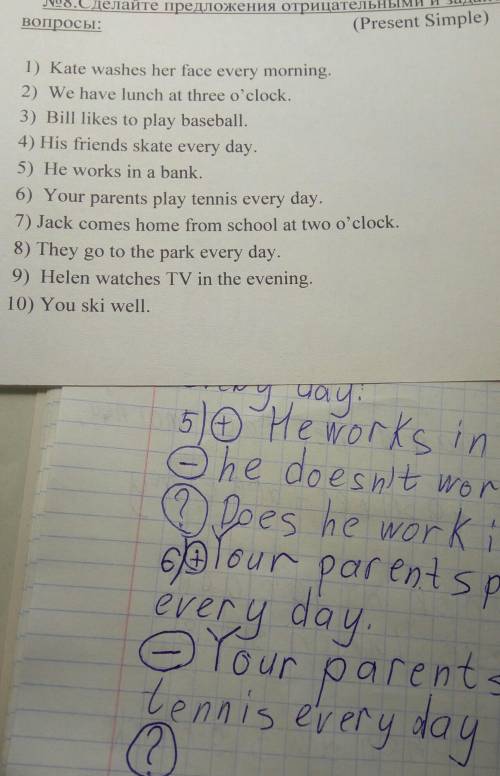 №8.Сделайте предложения отрицательными и
вопросы: (Present Simple)
1) Kate washes her face every morning.
2) We have lunch at three o'clock.
3) Bill likes to play baseball.
4) His friends skate every day.
5) He works in a bank.
6) Your parents play tennis every day.
7) Jack comes home from school at two o'clock.
8) They go to the park every day.
9) Helen watches TV in the evening.
10) You ski well.
day.
5) + He works in
− he doesn't wor
? Does he work i
6) + Your parents p
every day.
− Your parents
tennis every day
?